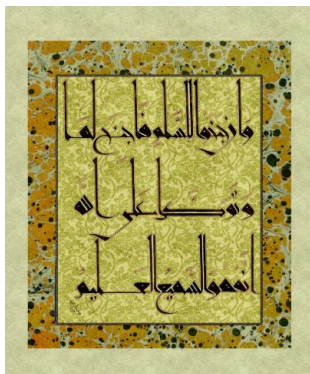 وَإِن جَنَحُوا لِلسَّلْمِ فَاجْنَحْ لَهَا
وَتَوَكَّلْ عَلَى اللَّهِ
إِنَّهُ هُوَ السَّمِيعُ الْعَلِيمُ